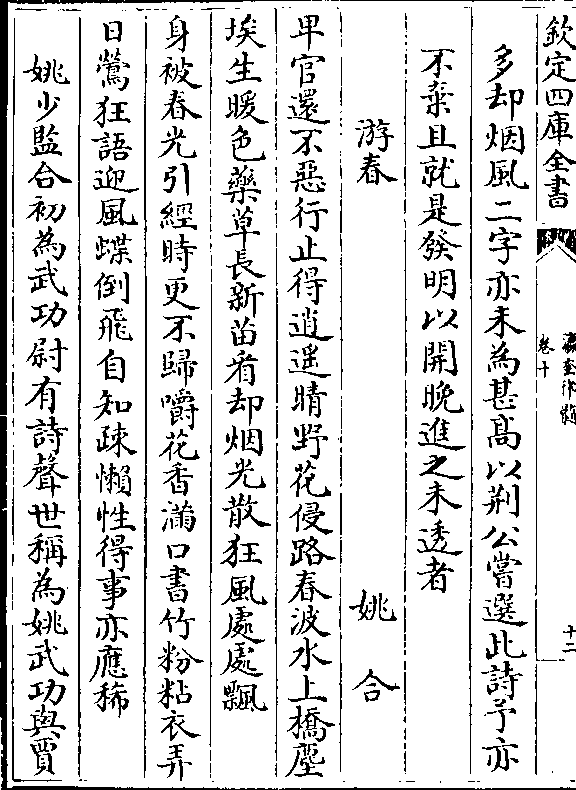 欽定四庫全書
瀛奎律髓
卷十
十二
多却烟風二字亦未為甚髙以荆公嘗選此詩予亦
不棄且就是發明以開晚進之未透者
游春 姚合
卑官還不惡行止得逍遥晴野花侵路春波水上橋塵
埃生暖色藥草長新苗看却烟光散狂風處處飄
身被春光引經時更不歸嚼花香滿口書竹粉粘衣弄
日鶯狂語迎風蝶倒飛自知疎懶性得事亦應稀
姚少監合初為武功尉有詩聲世稱為姚武功與賈